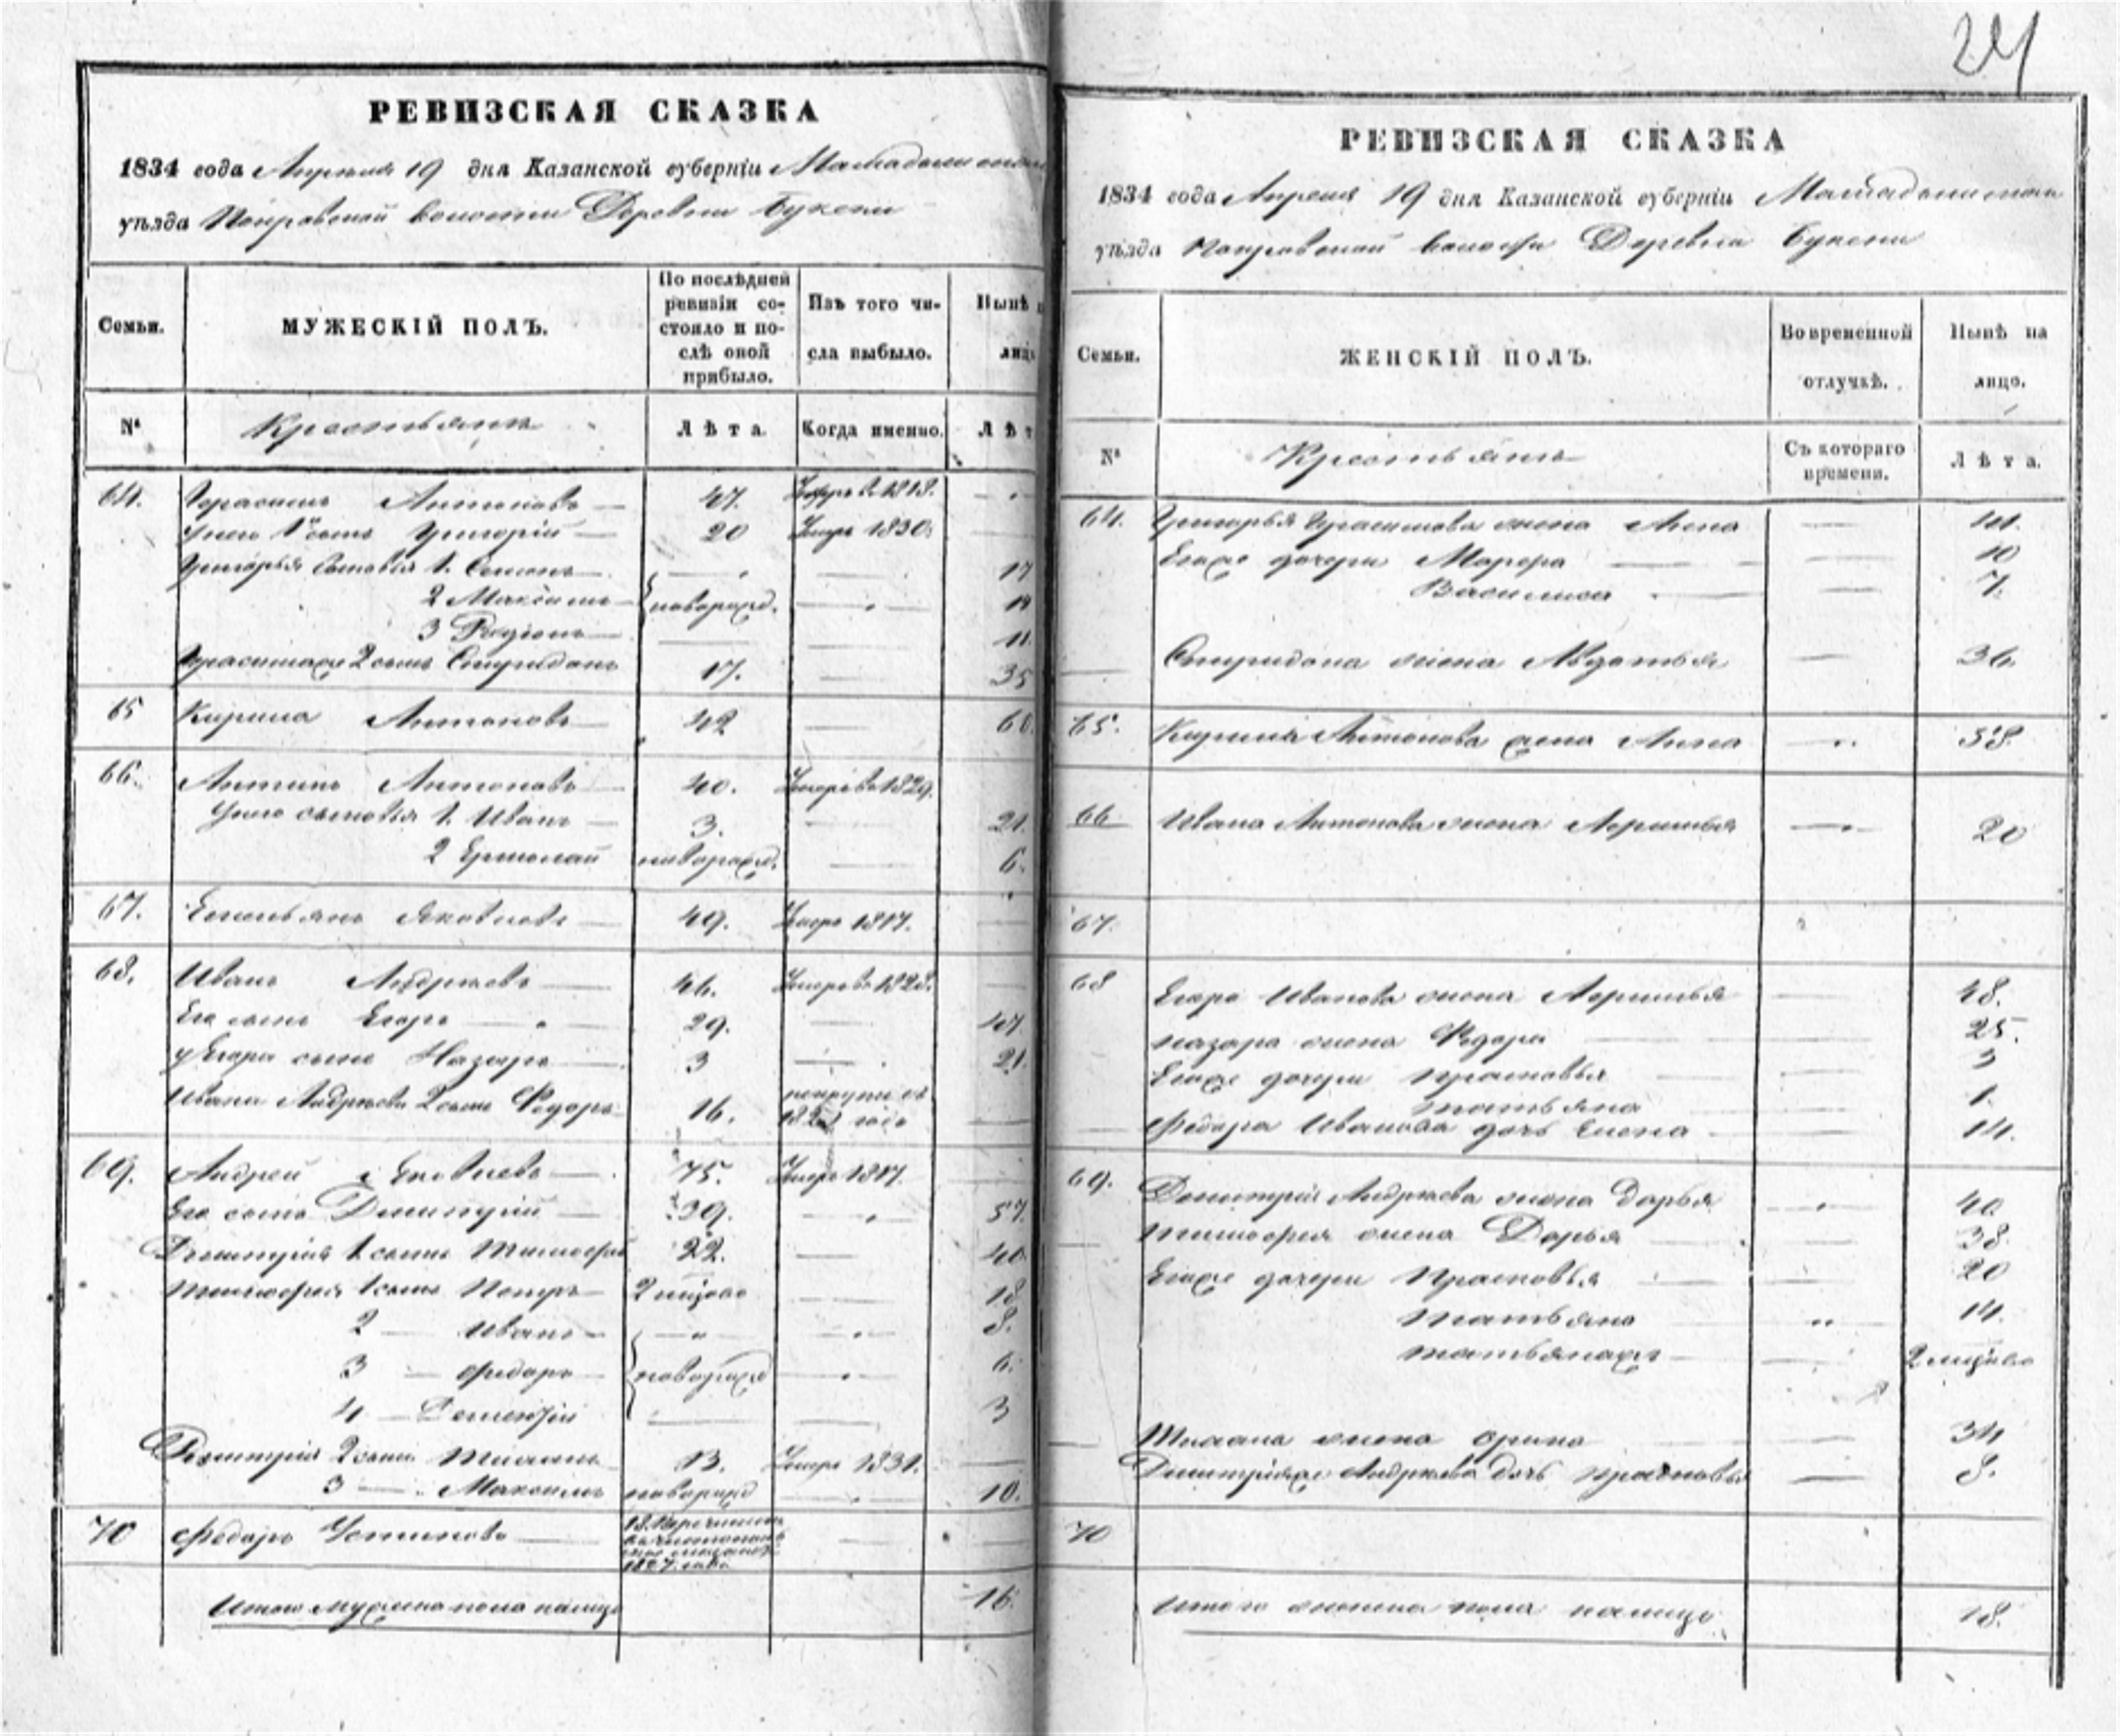 24
РЕВИЗСКАЯ СКАЗКА
1834 года Апреля 19 дня Казанской губерніи
уѣзда Покровской волости Деревни Букени
Семьи. МУЖЕСКІЙ ПОЛЪ. По послѣдней ревизіи состояло и послѣ оной прибыло. Изъ того числа выбыло. Нынѣ лицо
№ Крестьянъ Лѣта. Когда именно. Лѣт
64. Герасимъ Антоновъ 47. 1818.
У него 1й сынъ Григорій 20 1830.
Григорья сыновья 1. Семенъ 17
2 Максимъ новорожд. 14
3 Родіонъ 11
Герасима же 2 сынъ Спиридонъ 17. 35
65 Кирила Антоновъ 42 60
66. Антипъ Антоновъ 40. 1829.
У него сыновья 1. Иванъ 3. 21.
2 Ермолай новорожд. 6.
67. Емельянъ Яковлевъ 49. Умеръ 1817.
68. Иванъ Андреевъ 46. 1828.
Его сынъ Егоръ 29. 47
у Егора сынъ Назаръ 3 21.
Ивана Андреева 2 сынъ Федоръ 16. рекруты въ
годе
69. Андрей Яковлевъ 75. Умеръ 1817.
Его сынъ Дмитрій 39. 57
Дмитрія 1 сынъ Тимофей 22. 40
Тимофея 1 сынъ Петръ 2 18
2 — Иванъ 8.
3 — Федоръ новорожд 6.
4 — 3
Дмитрія 2 сынъ 13. Умеръ 1831.
3 — Максимъ новорожд 10.
70 Федоръ Устиновъ 13.
1827. года
Итого мужеска пола налицо 16.
РЕВИЗСКАЯ СКАЗКА
1834 года Апреля 19 дня Казанской губерніи
уѣзда Покровской волости Деревни Букени
Семьи. ЖЕНСКІЙ ПОЛЪ. Во временной отлучкѣ. Нынѣ на лицо.
№ Крестьянъ Съ котораго времени. Лѣта.
64. Григорья Герасимова жена 41.
Ево же дочери Марфа 10
Василиса 7.
Спиридона жена Авдотья 36.
65. Кирила Антонова жена Анна 58.
66 Ивана Антонова жена 20
67.
68 Егора Иванова жена 48.
Назара жена Федора 25.
Ево же дочери Прасковья 3
Татьяна 1.
Федора Иванова дочь Елена 14.
69. Дмитрія Андреева жена Дарья 40
Тимофея жена Дарья 38.
Ево же дочери Прасковья 20
Татьяна 14.
Татьяна же 2
жена Орина 34
Дмитрія же Андреева дочь Прасковья 8.
70
Итого женска пола налицо 18.